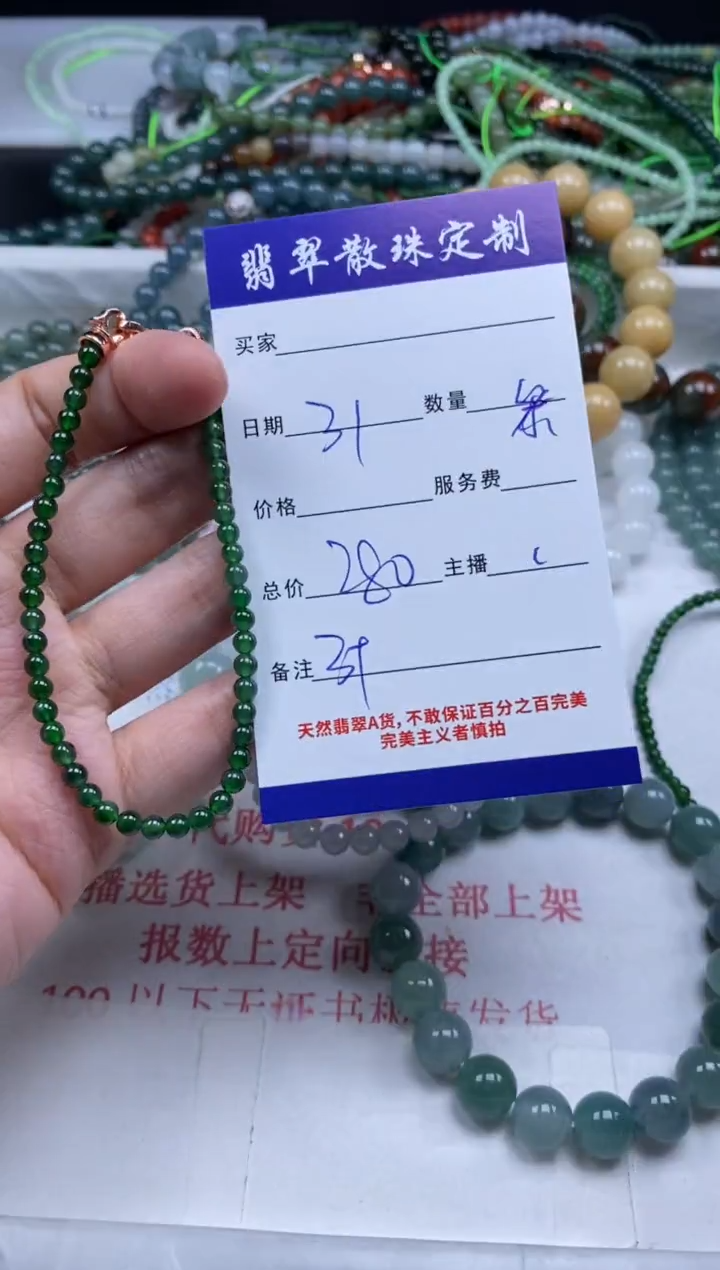 翡翠散珠定制
买家
日期 31 数量
价格 服务费
总价 280 主播
备注
天然翡翠A货,不敢保证百分之百完美
完美主义者慎拍
代购
播选货上架 全部上架
报数上定向 接
100以下无证书 发货